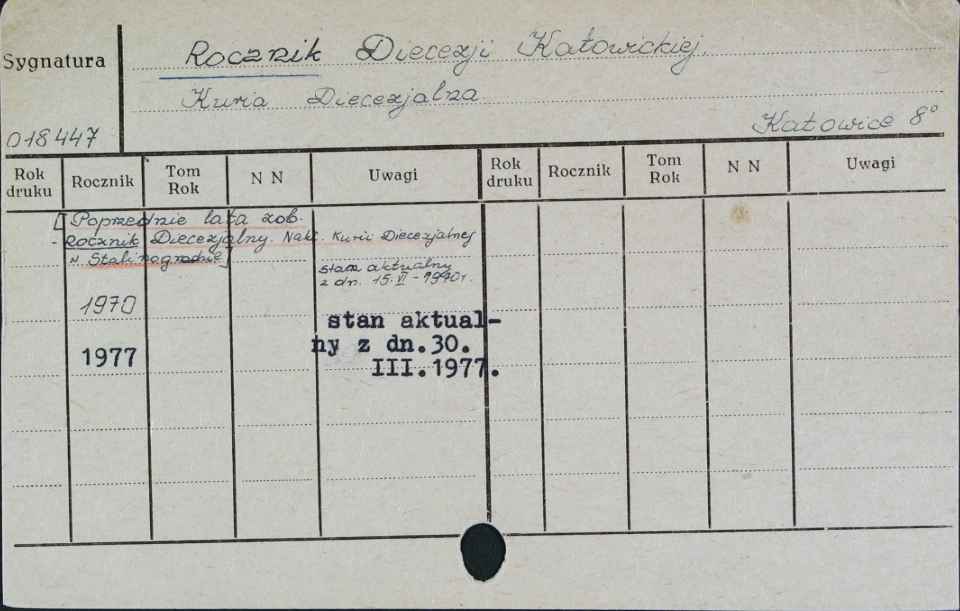 Sygnatura
Rocznik Diecezji Katowickiej.
Kuria Diecezjalna
Katowice 8°
018447
Rok druku Rocznik Tom Rok N N Uwagi Rok druku Rocznik Tom Rok N N Uwagi
[Poprzednie lata zob.
- Rocznik Diecezjalny. Nakł. Kurii Diecezjalnej
w Stalinogrodzie]
stan aktualny
z dn. 15.VI - 1970r.
1970
stan aktual-
ny z dn.30.
1977
III.1977.